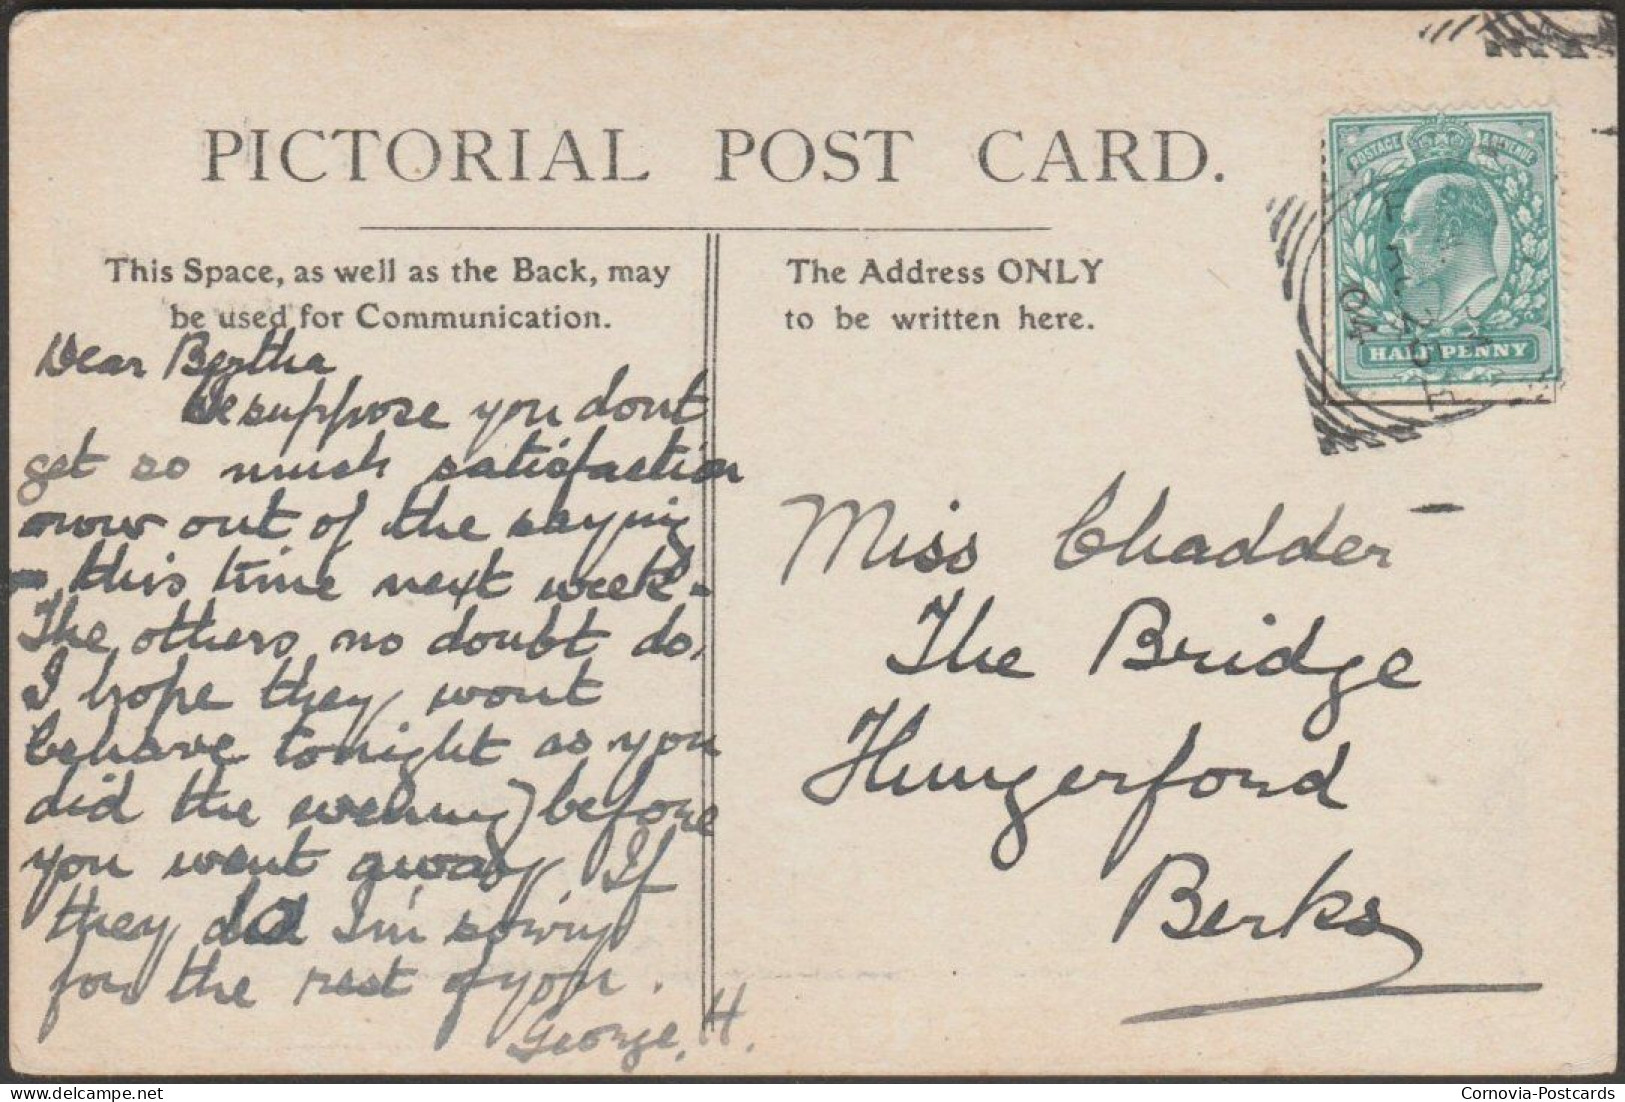 PICTORIAL POST CARD.
This Space, as well as the Back, may
be used for Communication.
The Address ONLY
to be written here.
POSTAGE & REVENUE
HALF PENNY
04
Dear Bertha
suppose you dont
get so much satisfaction
now out of the saying
- this time next week -
The others no doubt do,
I hope they wont
behave tonight as you
did the evening before
you went away. If
they do I'm sorry
for the rest of you.
George. H.
Miss Chadder -
The Bridge
Hungerford
Berks
Cornovia-Postcards